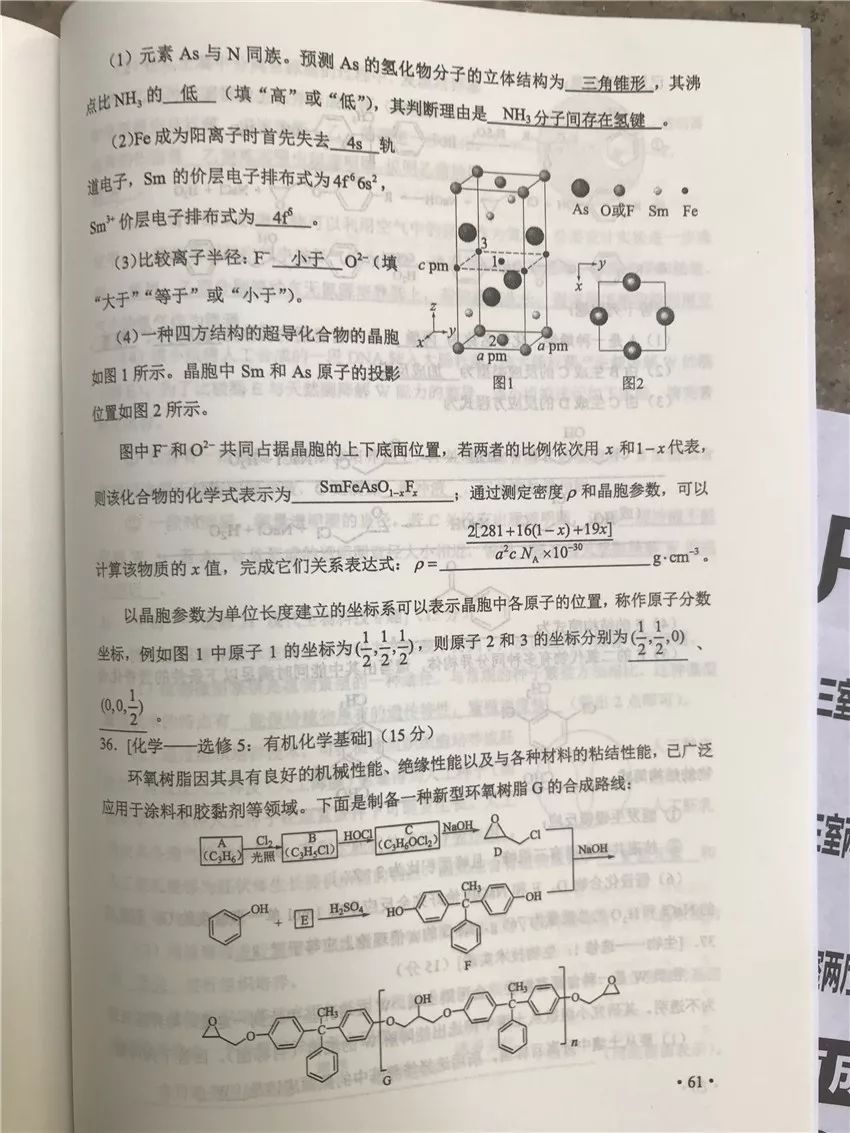 (1) 元素 As 与 N 同族。预测 As 的氢化物分子的立体结构为 三角锥形 ，其沸
点比NH₃ 的 低 （填“高”或“低”），其判断理由是 NH₃分子间存在氢键 。
(2)Fe 成为阳离子时首先失去 4s 轨
道电子，Sm 的价层电子排布式为 4f⁶6s²，
Sm³⁺ 价层电子排布式为 4f⁵ 。
(3)比较离子半径：F⁻ 小于 O²⁻（填
“大于”“等于”或“小于”）。
(4)一种四方结构的超导化合物的晶胞
如图 1 所示。晶胞中 Sm 和 As 原子的投影
位置如图 2 所示。
As O或F Sm Fe
3
c pm
1
z
y
x
2
a pm
a pm
图1
y
x
图2
图中F⁻和 O²⁻ 共同占据晶胞的上下底面位置，若两者的比例依次用 x 和1−x代表，
则该化合物的化学式表示为 SmFeAsO₁₋ₓFₓ ；通过测定密度 ρ 和晶胞参数，可以
计算该物质的 x 值，完成它们关系表达式：ρ= 2[281+16(1−x)+19x] / a²c N_A ×10⁻³⁰ g·cm⁻³。
以晶胞参数为单位长度建立的坐标系可以表示晶胞中各原子的位置，称作原子分数
坐标，例如图 1 中原子 1 的坐标为(1/2,1/2,1/2)，则原子 2 和 3 的坐标分别为(1/2,1/2,0) 、
(0,0,1/2) 。
36. [化学——选修 5：有机化学基础]（15 分）
环氧树脂因其具有良好的机械性能、绝缘性能以及与各种材料的粘结性能，已广泛
应用于涂料和胶黏剂等领域。下面是制备一种新型环氧树脂 G 的合成路线：
A (C₃H₆) Cl₂ 光照 B (C₃H₅Cl) HOCl C (C₃H₆OCl₂) NaOH O Cl D
NaOH
OH + E H₂SO₄ HO CH₃ C OH F
O O CH₃ C O OH O CH₃ C O O n
G
·61·